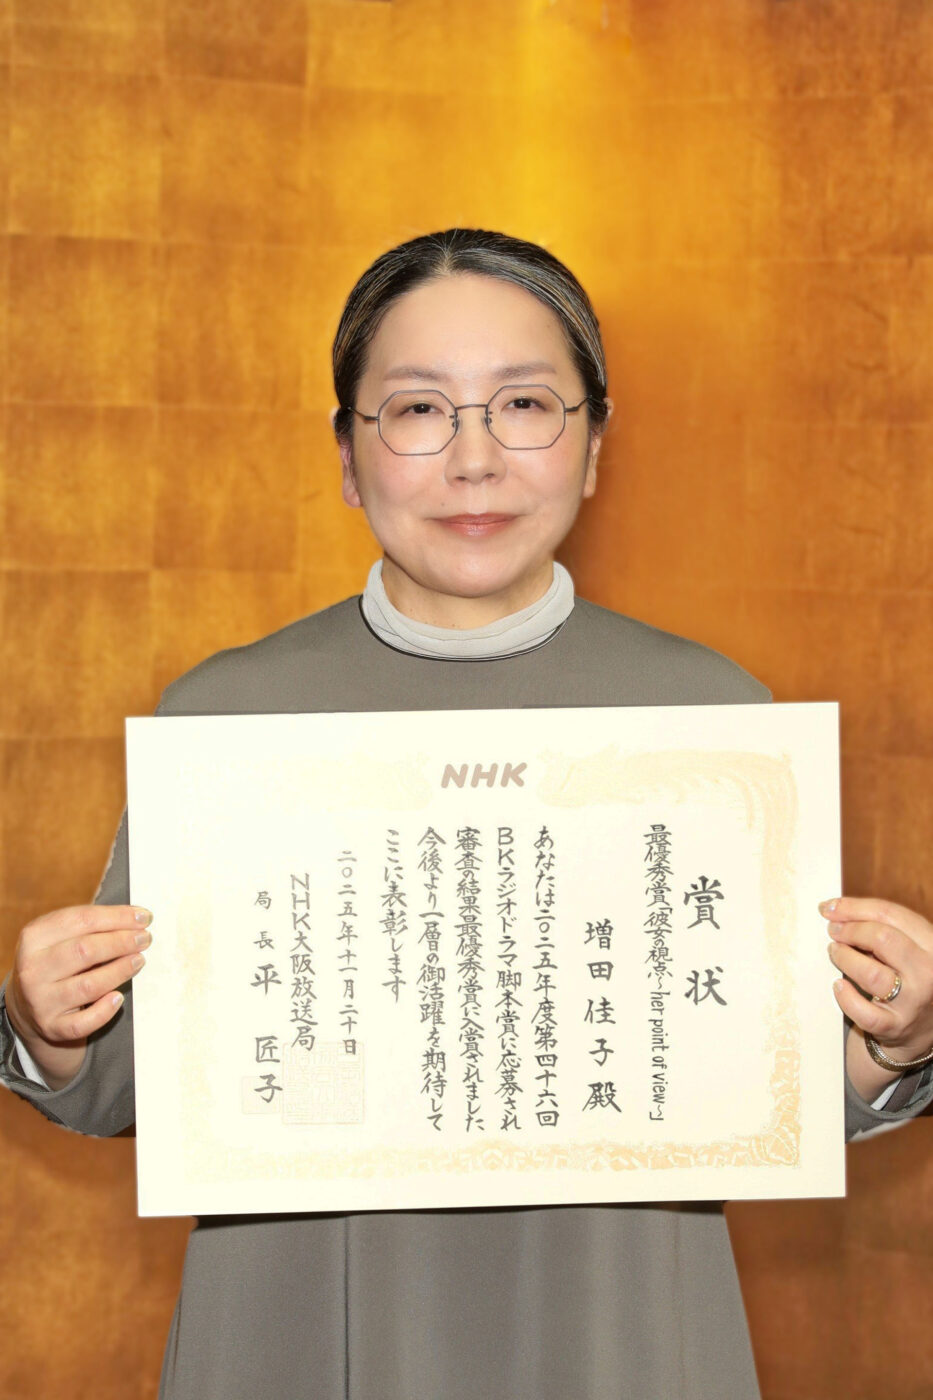 NHK
賞状
最優秀賞「彼女の視点〜her point of view〜」
増田佳子殿
あなたは二〇二五年度第四十六回
BKラジオドラマ脚本賞に応募され
審査の結果最優秀賞に入賞されました
今後より一層の御活躍を期待して
ここに表彰します
二〇二五年十一月二十日
NHK大阪放送局
局長 平 匠子